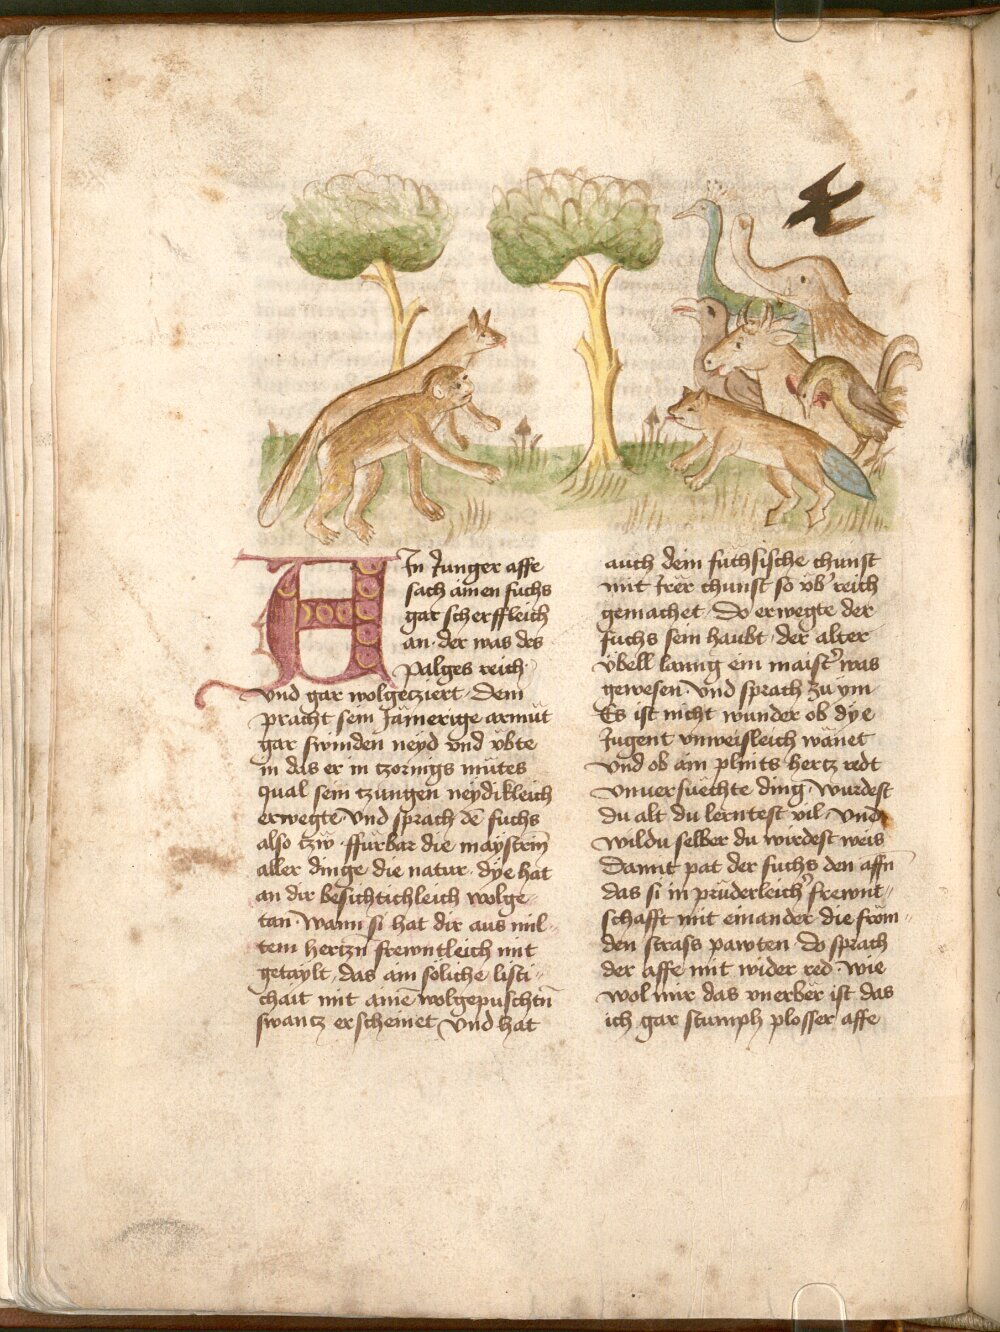 AIn Junger affe
sach ainen fuchs
gar scherffleich
an · der was des
Palges reich ·
vnd gar wolgecziert · Dem
pracht sein Jämerige armüt
gar swinden neyd vnd übte
in das er in czornigs mütes
qual sein czungen neydikleich
erwegte · Vnd sprach dē fuchs
also czw · ffürbar die maystrin̄
aller dinge die natur · dye hat
an dir besichtichleich wolge
tan · Wann si hat dir aus mil-
tem herczn̄ frewntleich mit
getaylt · das ain söliche listi-
chait mit ainē wolgepuschtn̄
swancz erscheinet · Vnd hat
auch dein füchsische chunst
mit Irer chunst so vb̾ reich
gemachet · Do erwegte der
fuchs sein haubt · der alter
übell lanng ein maist̾ was
gewesen · Vnd sprach zu ym
Es ist nicht wunder ob dye
Jugent vnweisleich wänet
Vnd ob ain plints hercz redt
vnuersuechte ding · Wurdest
du alt du lerntest vil · Vnd
wildu selber du wirdest weis
Damit pat der fuchs den affn̄
das si in prüderleich̾ frewnt-
schafft mit einander die fröm-
den strass pawten · do sprach
der affe mit wider red · Wie
wol mir das vnerber ist das
ich gar stumph plosser affe